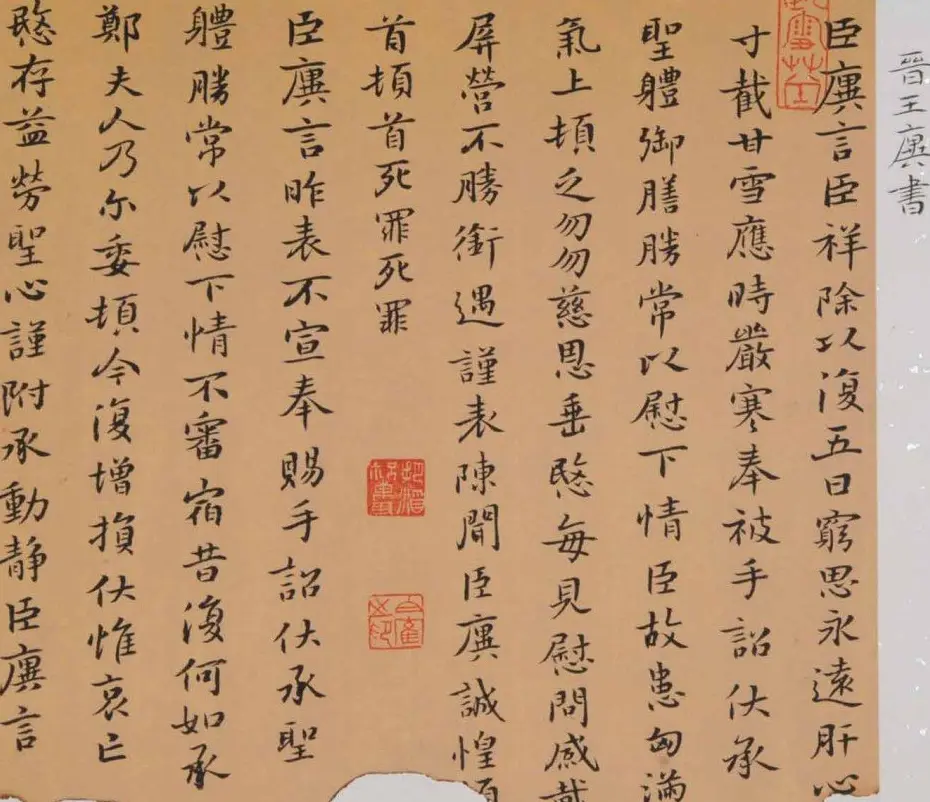 晉王廙書
臣廙言臣祥除以復五日窮思永遠肝心
寸截甘雪應時嚴寒奉被手詔伏承
聖體御膳勝常以慰下情臣故患匈滿
氣上頓乏勿勿慈恩垂愍每見慰問感戴
屏營不勝銜遇謹表陳聞臣廙誠惶頓
首頓首死罪死罪
臣廙言昨表不宣奉賜手詔伏承聖
體勝常以慰下情不審宿昔復何如承
鄭夫人乃尔委頓今復增損伏惟哀亡
愍存益勞聖心謹附承動靜臣廙言